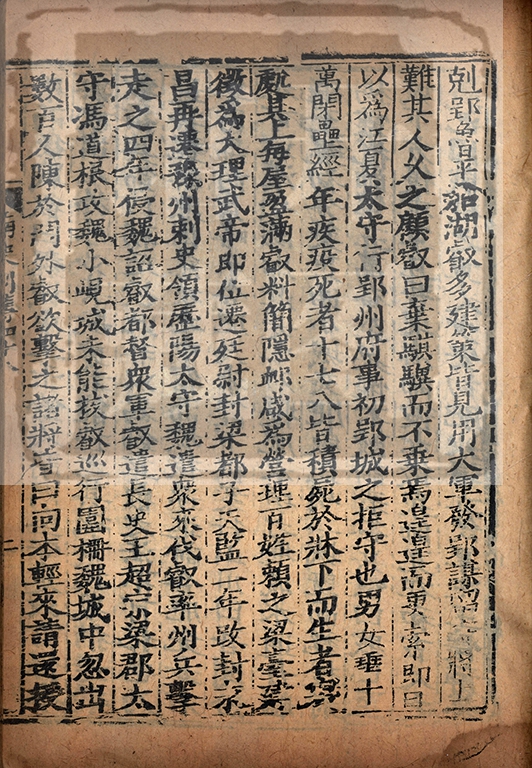 剋郢魯平加湖叡多建策皆見用大軍發郢謀留守將上
難其人久之顧叡曰棄騏驥而不乘焉遑遑而更索即日
以為江夏太守行郢州府事初郢城之拒守也男女垂十
萬閉壘經年疾疫死者十七八皆積屍於牀下而生者寢
處其上每屋盈滿叡料簡隱恤咸為營理百姓賴之梁臺建
徵為大理武帝即位遷廷尉封梁都子天監二年改封永
昌再遷豫州刺史領歷陽太守魏遣衆來伐叡率州兵擊
走之四年侵魏詔叡都督衆軍叡遣長史王超宗梁郡太
守馮道根攻魏小峴城未能拔叡巡行圍柵魏城中忽出
數百人陳於門外叡欲擊之諸將皆曰向本輕來請還授